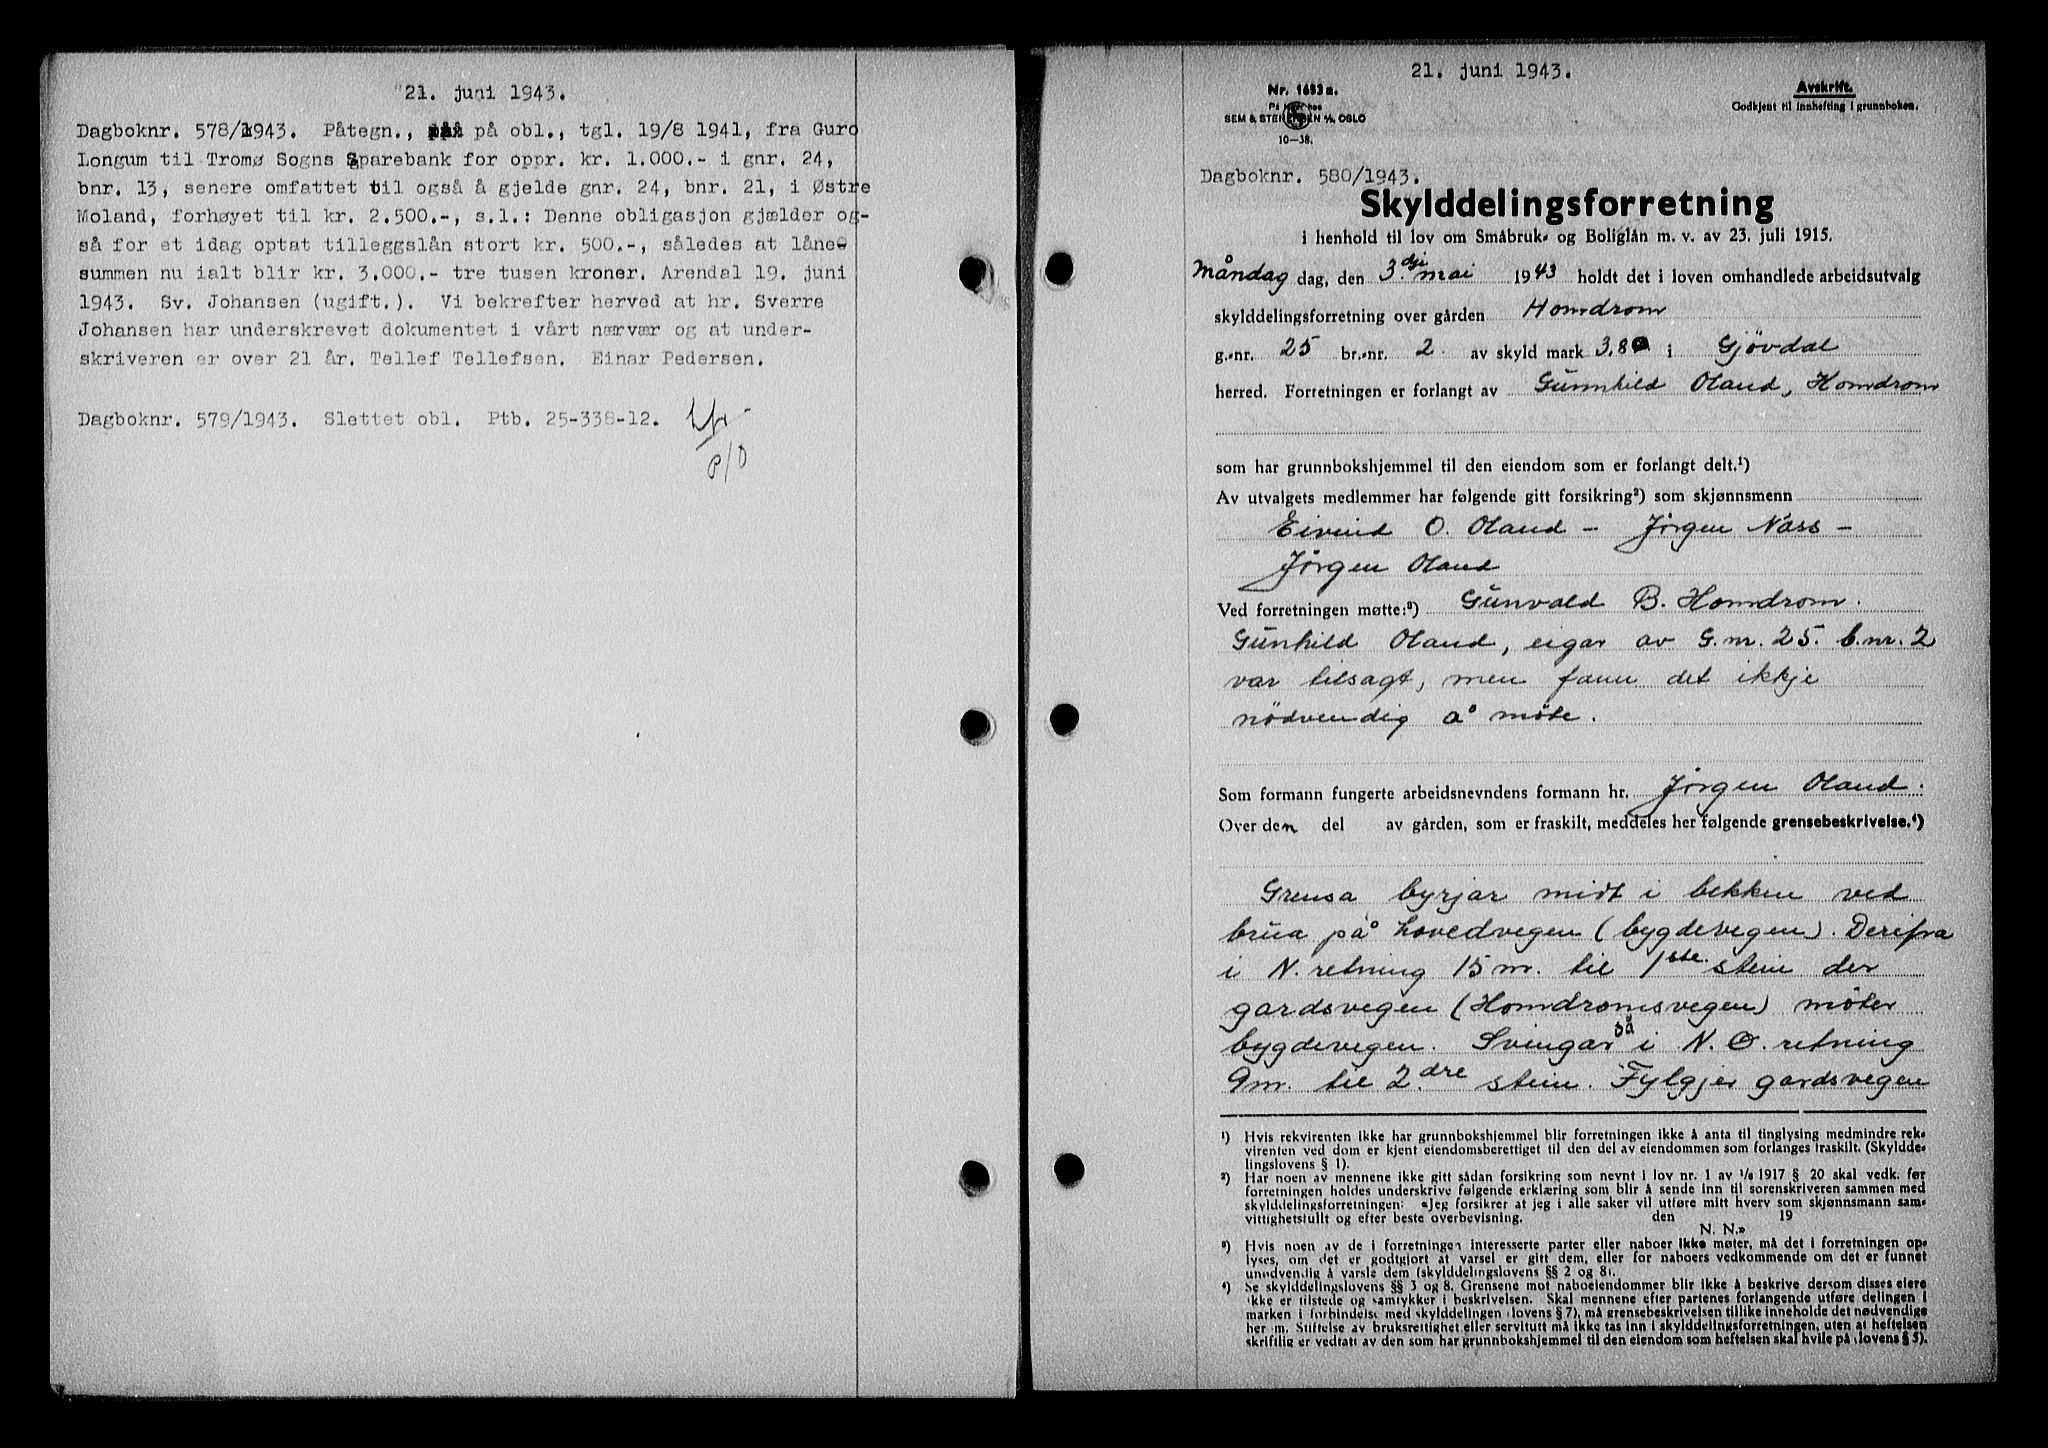 21. juni 1943.
Dagboknr. 578/1943. Påtegn., på obl., tgl. 19/8 1941, fra Guro
Longum til Tromø Sogns Sparebank for oppr. kr. 1.000.- i gnr. 24,
bnr. 13, senere omfattet til også å gjelde gnr. 24, bnr. 21, i Østre
Moland, forhøyet til kr. 2.500.-, s.l.: Denne obligasjon gjælder og-
så for et idag optat tilleggslån stort kr. 500.-, således at låne-
summen nu ialt blir kr. 3.000.- tre tusen kroner. Arendal 19. juni
1943. Sv. Johansen (ugift.). Vi bekrefter herved at hr. Sverre
Johansen har underskrevet dokumentet i vårt nærvær og at under-
skriveren er over 21 år. Tellef Tellefsen. Einar Pedersen.
Dagboknr. 579/1943. Slettet obl. Ptb. 25-338-12.
21. juni 1943.
Nr. 1653 a.
På lager hos
SEM & STENERSEN A/S, OSLO
10—38.
Avskrift.
Godkjent til innhefting i grunnboken.
Dagboknr. 580/1943.
Skylddelingsforretning
i henhold til lov om Småbruk- og Boliglån m. v. av 23. juli 1915.
Måndag dag, den 3.dji mai 1943 holdt det i loven omhandlede arbeidsutvalg
skylddelingsforretning over gården Homdrom
g.-nr. 25 br.-nr. 2 av skyld mark 3,80 i Gjövdal
herred. Forretningen er forlangt av Gunnhild Oland, Homdrom
som har grunnbokshjemmel til den eiendom som er forlangt delt.¹)
Av utvalgets medlemmer har følgende gitt forsikring²) som skjønnsmenn
Eivind O. Oland – Jørgen Nass –
Jørgen Oland
Ved forretningen møtte:³) Gunvald B. Homdrom.
Gunhild Oland, eigar av G.nr. 25. b.nr. 2
var tilsagt, men fann det ikkje
nödvendig å møte.
Som formann fungerte arbeidsnevndens formann hr. Jørgen Oland.
Over den del av gården, som er fraskilt, meddeles her følgende grensebeskrivelse.⁴)
Grensa byrjar midt i bekken ved
brua på hovedvegen (bygdevegen). Derifra
i N. retning 15 m. til 1ste stein der
gardsvegen (Homdromsvegen) møter
bygdevegen. Svingar så i N.O. retning
9m. til 2.dre stein. Fylgjer gardsvegen
¹) Hvis rekvirenten ikke har grunnbokshjemmel blir forretningen ikke å anta til tinglysing medmindre rek-
virenten ved dom er kjent eiendomsberettiget til den del av eiendommen som forlanges fraskilt. (Skyldde-
lingslovens § 1).
²) Har noen av mennene ikke gitt sådan forsikring som nevnt i lov nr. 1 av 1/6 1917 § 20 skal vedk. før
forretningen holdes underskrive følgende erklæring som blir å sende inn til sorenskriveren sammen med
skylddelingsforretningen: «Jeg forsikrer at jeg i alle saker vil utføre mitt hverv som skjønnsmann sam-
vittighetsfullt og efter beste overbevisning. den 19
N. N.»
³) Hvis noen av de i forretningen interesserte parter eller naboer ikke møter, må det i forretningen op-
lyses, om det er godtgjort at varsel er gitt dem, eller for naboers vedkommende om det er funnet
unødvendig å varsle dem (skylddelingslovens §§ 2 og 8).
⁴) Se skylddelingslovens §§ 3 og 8. Grensene mot naboeiendommer blir ikke å beskrive dersom disses eiere
ikke er tilstede og samtykker i beskrivelsen. Skal mennene efter partenes forlangende utføre delingen i
marken i forbindelse med skylddelingen (lovens § 7), må grensebeskrivelsen tillike inneholde det nødvendige
her om. Stiftelse av bruksrettighet eller servitutt må ikke tas inn i skylddelingsforretningen, uten at heftelsen
skriftlig er vedtatt av den som har grunnbokshjemmel til den eiendom som heftelsen skal hvile på (lovens § 5).